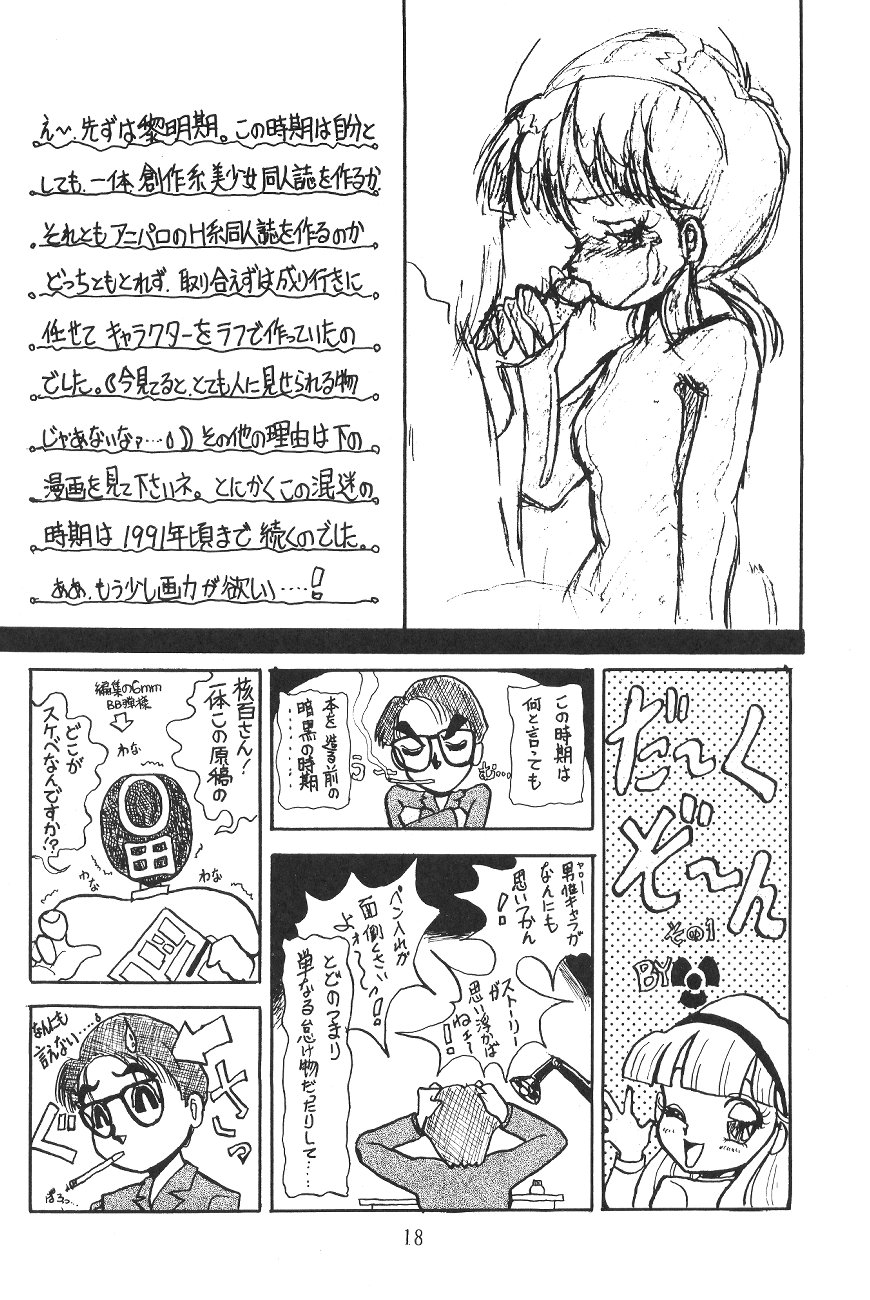 え〜、先ずは黎明期。この時期は自分と
しても、一体創作系美少女同人誌を作るか
それともアニパロのH系同人誌を作るのか
どっちともとれず、取り合えずは成り行きに
任せてキャラクターをラフで作っていたの
でした。(今見てると、とても人に見せられる物
じゃあないなァ…)その他の理由は下の
漫画を見て下さいネ。とにかくこの混迷の
時期は1991年頃まで続くのでした。
ああ、もう少し画力が欲しい……!
だ〜く
ぞ〜ん
その1
BY
この時期は
何と言っても
本を造る前の
暗黒の時期
男性キャラが
なんにも
思いつかん
!!
ペン入れが
面倒くさい
よォ〜!!
ストーリー
が
思い浮かば
ねェー!!
とどのつまり
単なる怠け物だったりして……
核百さん!
一体この原稿の
どこが
スケベなんですか!?
編集の6mm
BB弾様
わな
わな
わな
なんにも
言えない……
グ
サ
っ
ぽろっ…
18